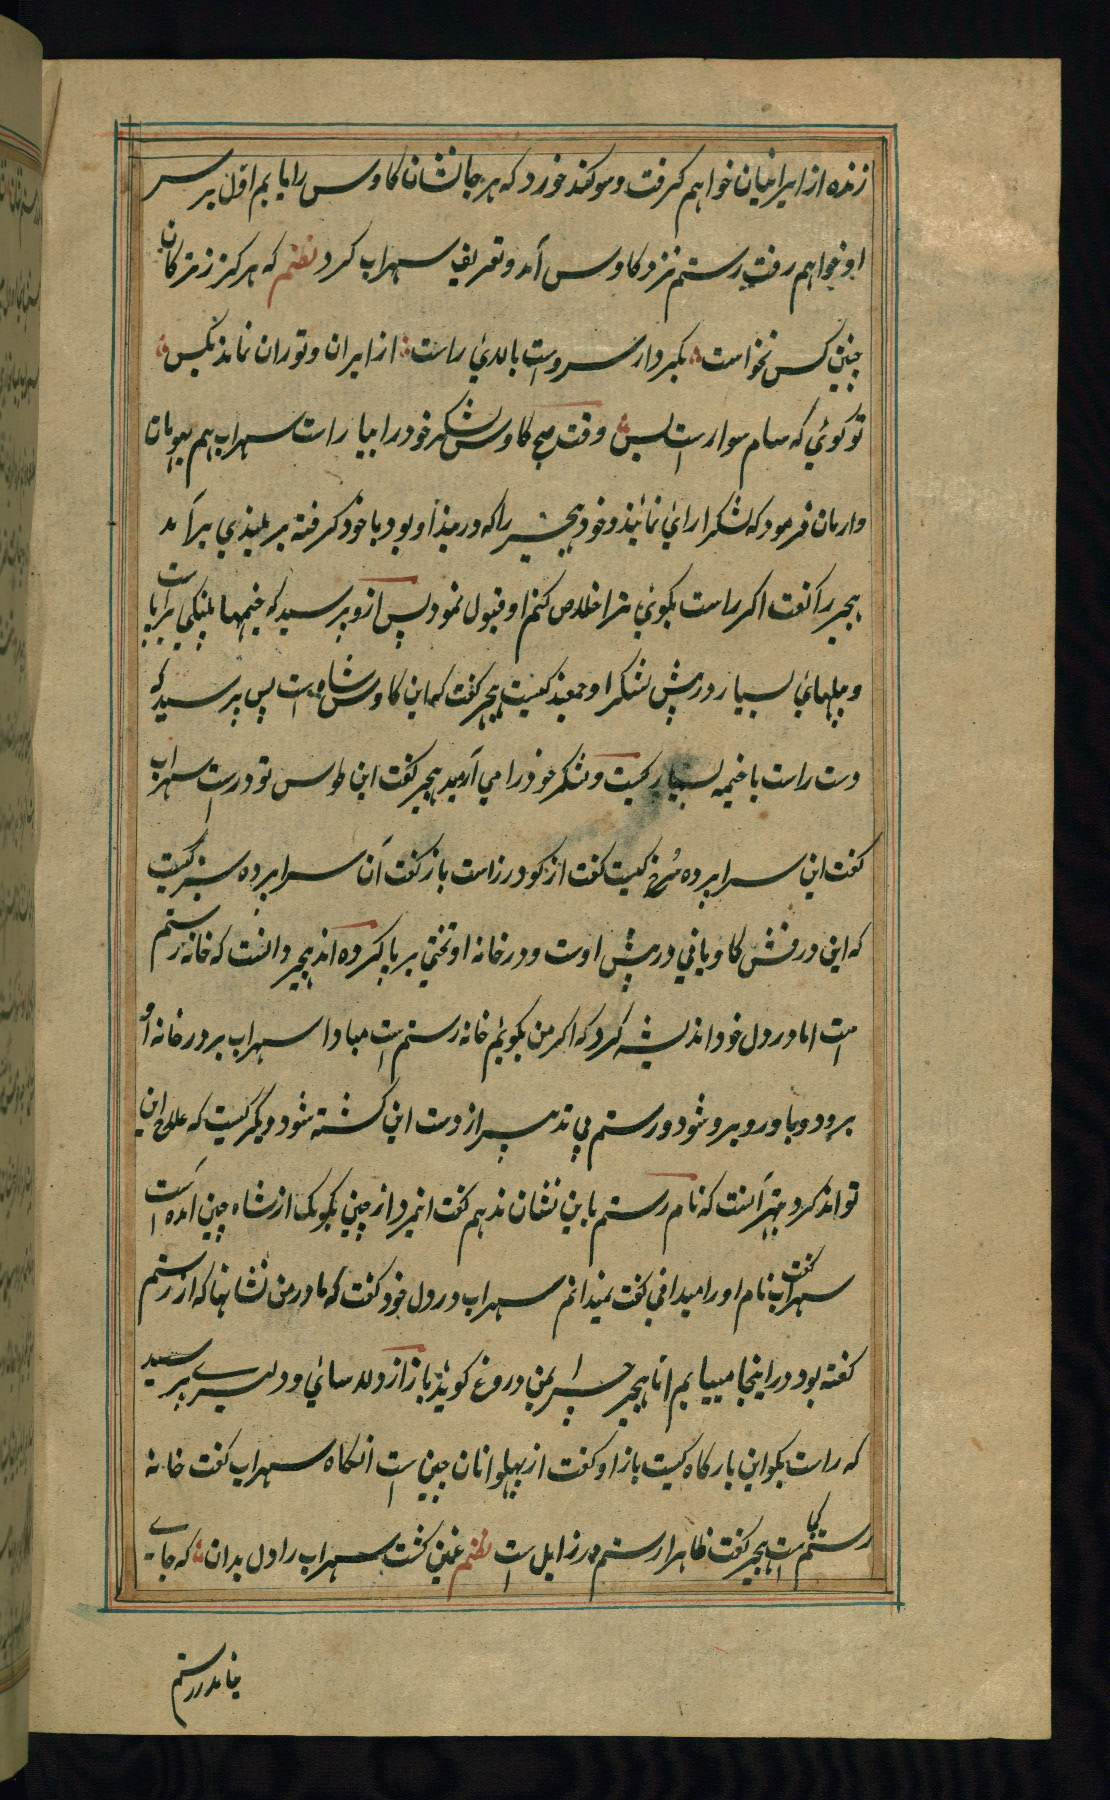 زنده از ایرانیان خواهم کرفت و سوکند خورد که هر جا نشان کاوس را یابم اول بر سر
او خواهم رفت رستم نزد کاوس آمد و تعریف سهراب کرد نظم که هرکز ز ترکان
چنین کس نخواست بکردار سرو است بالای راست از ایران و توران نماند بکس
تو کوئی که سام سوار است بس وقت صبح کاوس لشکر خود را بیاراست سهراب هم بهومان
و ارمان فرمود که لشکر ارای نمائید و خود هجیر را که در بند او بود با خود کرفته بر بلندی برآمد
هجیر را کفت اکر راست بکوئی ترا خلاص کنم او قبول نمود پس ازو پرسید که خیمها پلنکی برپا است
و پیلهای بسیار در پیش لشکر او جمعند کیست هجیر کفت که این کاوس شاه است پس پرسید که
دست راست با خیمه بسیار کیست و لشکر خود را می آرمید هجیر کفت این طوس نوذر است سهراب
کفت این سراپرده سرخ کیست کفت از کودرز است باز کفت آن سراپرده سبز کیست
که این درفش کاویانی در پیش اوست و در خانه او تختی برپا کرده اند هجیر دانست که خانه رستم
است اما در دل خود اندیشه کرد که اکر من بکویم خانه رستم است مبادا سهراب بر در خانه او
برود و با او روبرو شود و رستم بی تدبیر از دست این کشته شود دیکر کیست که علاج این
تواند کرد بهتر آنست که نام رستم باین نشان ندهم کفت اینمرد از چین بکومک از شاه چین آمده است
سهراب کفت نام او را میدانی کفت نمیدانم سهراب در دل خود کفت که مادر من نشانها که از رستم
کفته بود در اینجا مییابم اما هجیر چرا بمن دروغ کوید باز از دلاسائی و دلبری پرسید
که راست بکو این بارکاه کیست باز او کفت از پهلوانان چین است انکاه سهراب کفت خانه
رستم کجا است هجیر کفت ظاهرا رستم در زابل است نظم غمین کشت سهراب را دل بدان که جای
نیامد ز رستم